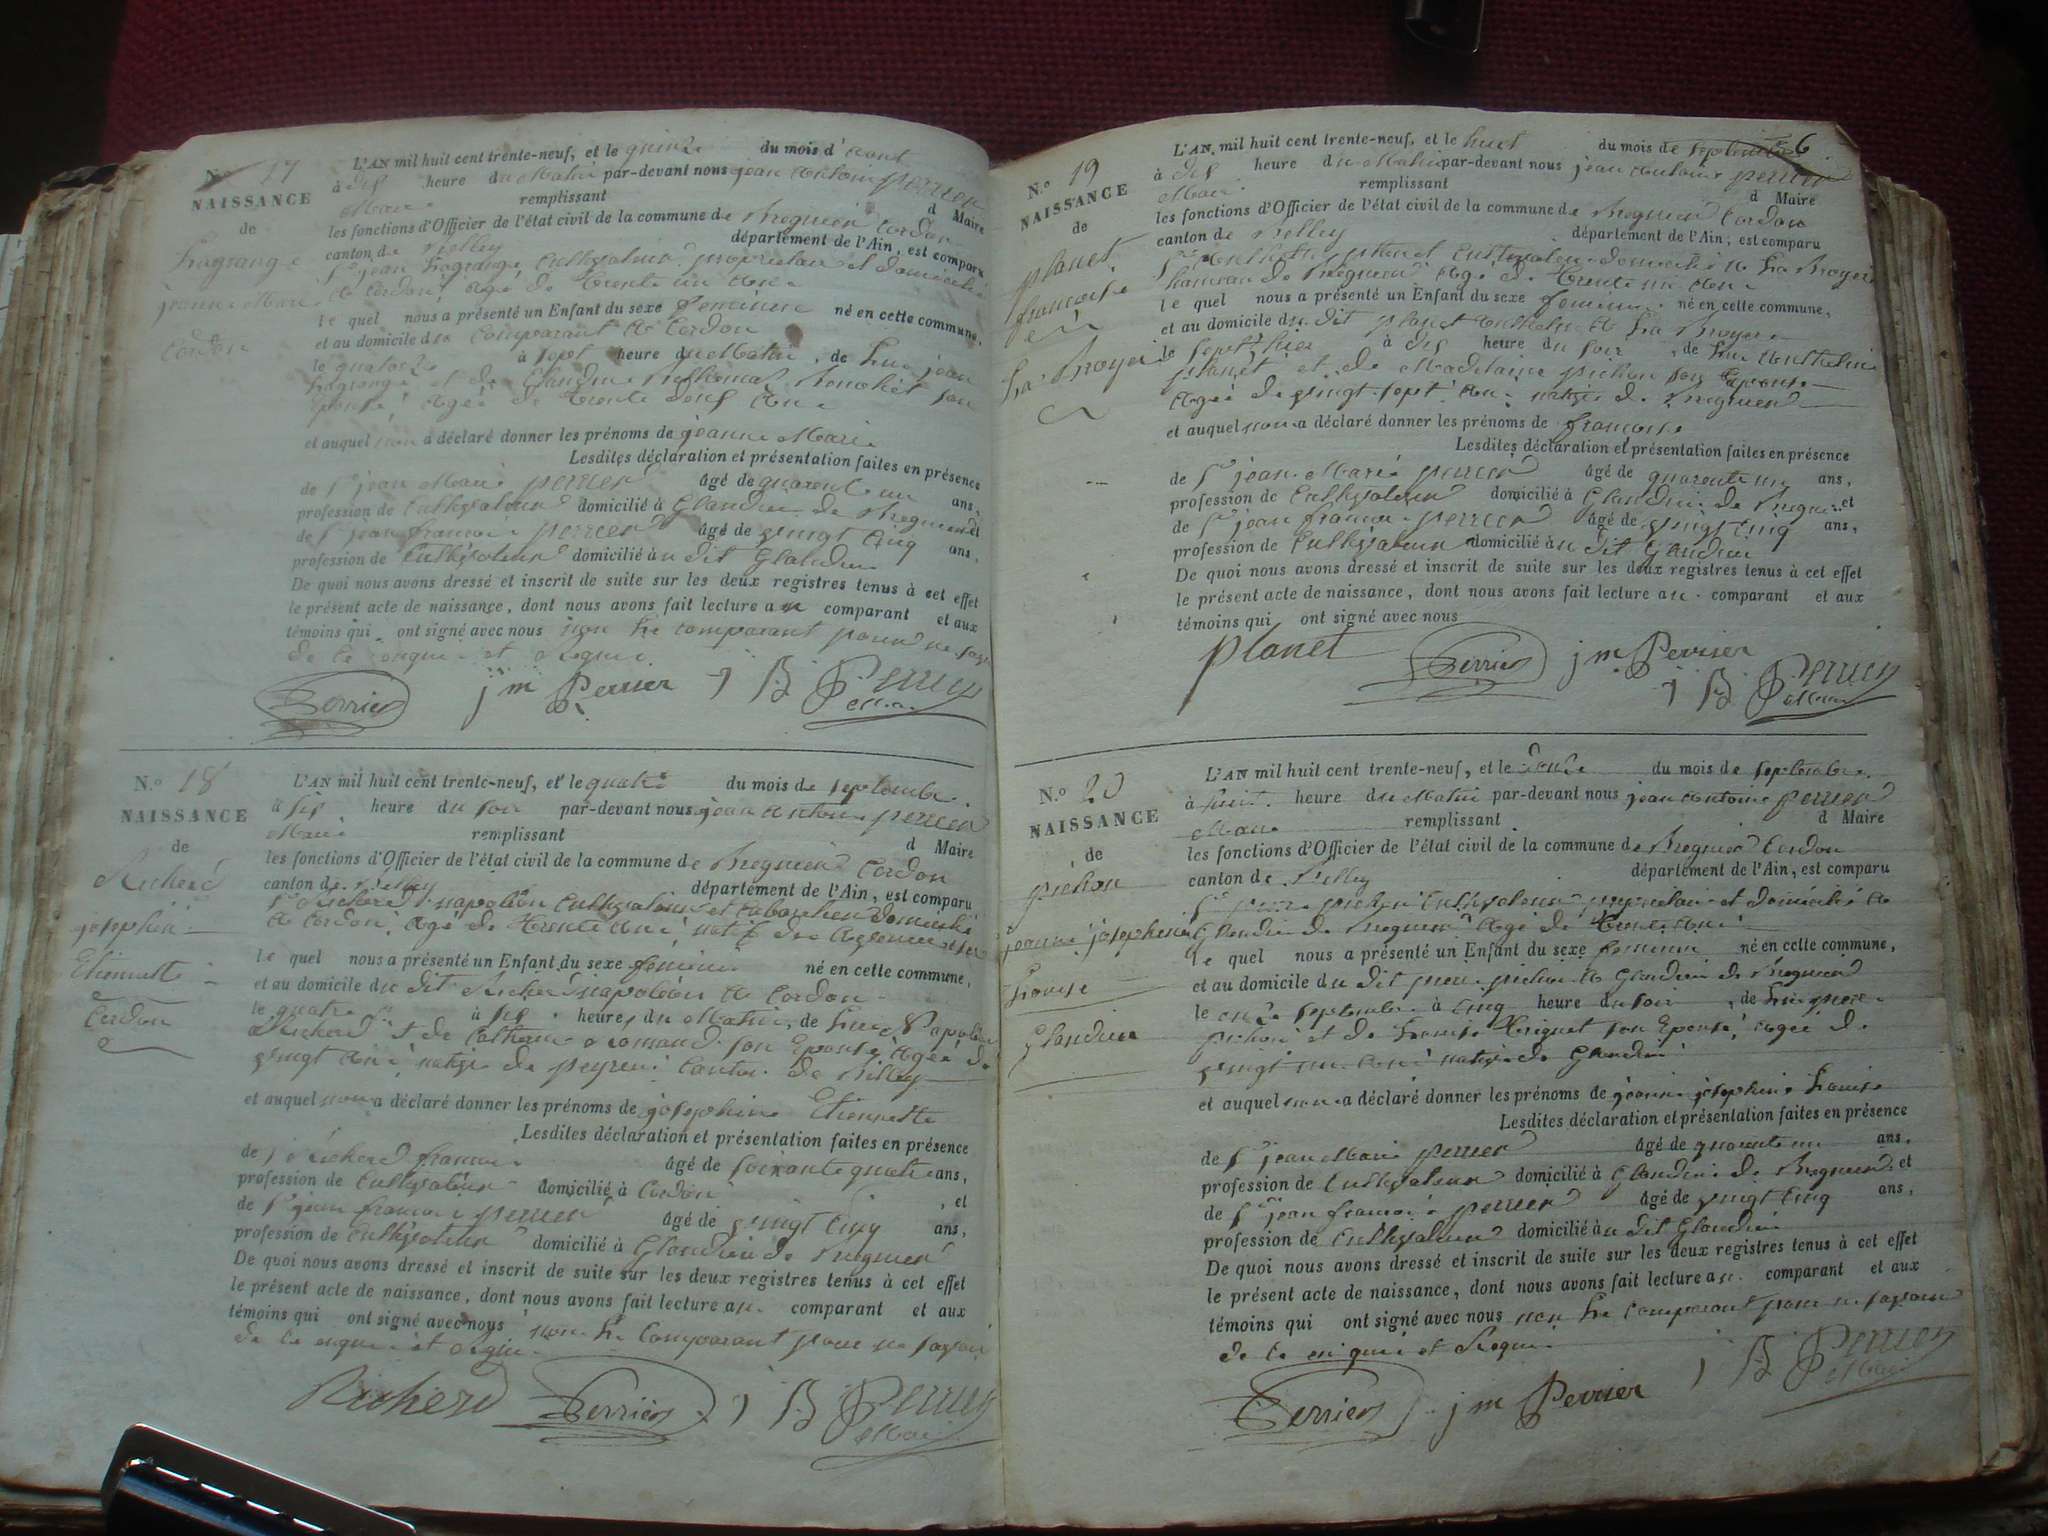 N.º 17
NAISSANCE
de
Lagrange
jeanne Marie
Cordon
L'AN mil huit cent trente-neuf, et le quinze du mois d'aout
à dix heure du Matin par-devant nous jean Antoine perrier
Maire remplissant d Maire
les fonctions d'Officier de l'état civil de la commune de Bregnier Cordon
canton de Belley département de l'Ain, est comparu
Sr jean Lagrange Cultivateur propriétaire et domicilié
à Cordon agé de trente un ans
le quel nous a présenté un Enfant du sexe feminin né en cette commune,
et au domicile du comparant à Cordon
le quatorze à sept heure du Matin, de lui jean
Lagrange et de Claudine son
Epouse agée de trente ans
et auquel nous a déclaré donner les prénoms de jeanne Marie
Lesdites déclaration et présentation faites en présence
de Sr jean Marie perrier âgé de quarente un ans,
profession de Cultivateur domicilié à Glandieu de Bregnier et
de Sr jean francois perrier âgé de vingt cinq ans,
profession de Cultivateur domicilié à u dit Glandieu
De quoi nous avons dressé et inscrit de suite sur les deux registres tenus à cet effet
le présent acte de naissance, dont nous avons fait lecture au comparant et aux
témoins qui ont signé avec nous non le comparant pour ne savoir
de ce enquis et requis
Perrier jm Perrier J B Perrier
Maire
N.º 18
NAISSANCE
de
Richerd
josephine
Etiennette
Cordon
L'AN mil huit cent trente-neuf, et le quatre du mois de septembre
à six heure du soir par-devant nous jean Antoine perrier
Maire remplissant d Maire
les fonctions d'Officier de l'état civil de la commune de Bregnier Cordon
canton de Belley département de l'Ain, est comparu
Sr Richerd napoléon Cultivateur et cabaretier domicilié
à Cordon, agé de trente ans, natif de
le quel nous a présenté un Enfant du sexe feminin né en cette commune,
et au domicile du dit Richerd napoléon à Cordon
le quatre à six heure du Matin, de lui Napoléon
Richerd et de Catherine son Epouse, agée de
vingt ans, native de peyrieu Canton de Belley
et auquel nous a déclaré donner les prénoms de josephine Etiennette
Lesdites déclaration et présentation faites en présence
de Richerd francois âgé de soixante quatre ans,
profession de Cultivateur domicilié à Cordon, et
de Sr jean francois perrier âgé de vingt cinq ans,
profession de Cultivateur domicilié à Glandieu de Bregnier
De quoi nous avons dressé et inscrit de suite sur les deux registres tenus à cet effet
le présent acte de naissance, dont nous avons fait lecture au comparant et aux
témoins qui ont signé avec nous non le comparant pour ne savoir
de ce enquis et requis
Richerd Perrier J B Perrier
Maire
6
N.º 19
NAISSANCE
de
planet
francoise
La Broyer
L'AN mil huit cent trente-neuf, et le huit du mois de septembre
à dix heure du Matin par-devant nous jean Antoine perrier
Maire remplissant d Maire
les fonctions d'Officier de l'état civil de la commune de Bregnier Cordon
canton de Belley département de l'Ain, est comparu
Sr Anthelme planet Cultivateur domicilié à La Broyer
hameau de Bregnier agé de trente un ans
le quel nous a présenté un Enfant du sexe feminin né en cette commune,
et au domicile du dit planet Anthelme à La Broyer
le sept hier à dix heure du soir, de lui Anthelme
planet et de Madelaine pichon son Epouse
agée de vingt sept ans native de Bregnier
et auquel nous a déclaré donner les prénoms de francoise
Lesdites déclaration et présentation faites en présence
de Sr jean Marie perrier âgé de quarente un ans,
profession de Cultivateur domicilié à Glandieu de Bregnier et
de Sr jean francois perrier âgé de vingt cinq ans,
profession de Cultivateur domicilié à u dit Glandieu
De quoi nous avons dressé et inscrit de suite sur les deux registres tenus à cet effet
le présent acte de naissance, dont nous avons fait lecture au comparant et aux
témoins qui ont signé avec nous
planet Perrier jm Perrier
J B Perrier
Maire
N.º 20
NAISSANCE
de
pichon
jeanne josephine
Louise
Glandieu
L'AN mil huit cent trente-neuf, et le douze du mois de septembre
à huit heure du Matin par-devant nous jean Antoine perrier
Maire remplissant d Maire
les fonctions d'Officier de l'état civil de la commune de Bregnier Cordon
canton de Belley département de l'Ain, est comparu
Sr pierre pichon Cultivateur propriétaire et domicilié à
Glandieu de Bregnier agé de trente ans
le quel nous a présenté un Enfant du sexe feminin né en cette commune,
et au domicile du dit pierre pichon à Glandieu de Bregnier
le onze septembre à cinq heure du soir, de lui pierre
pichon et de Louise son Epouse, agée de
vingt un ans native de Glandieu
et auquel nous a déclaré donner les prénoms de jeanne josephine Louise
Lesdites déclaration et présentation faites en présence
de Sr jean Marie perrier âgé de quarente un ans,
profession de Cultivateur domicilié à Glandieu de Bregnier et
de Sr jean francois perrier âgé de vingt cinq ans,
profession de Cultivateur domicilié à u dit Glandieu
De quoi nous avons dressé et inscrit de suite sur les deux registres tenus à cet effet
le présent acte de naissance, dont nous avons fait lecture au comparant et aux
témoins qui ont signé avec nous non le comparant pour ne savoir
de ce enquis et requis
Perrier jm Perrier J B Perrier
Maire